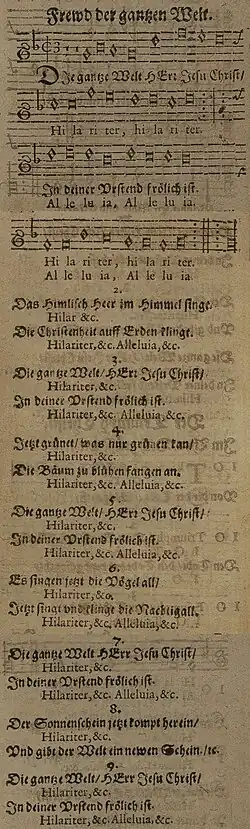 Frewd der gantzen Welt.
DJe gantze Welt HErr Jesu Christ/
Hi la ri ter, hi la ri ter.
Jn deiner Vrstend frölich ist.
Al le lu ia, Al le lu ia.
Hi la ri ter, hi la ri ter.
Al le lu ia, Al le lu ia.
2.
Das Himlisch Heer im Himmel singe.
Hilar &c.
Die Christenheit auff Erden klinge.
Hilariter, &c. Alleluia, &c.
3.
Die gantze Welt/ HErr Jesu Christ/
Hilariter, &c.
Jn deiner Vrstend frölich ist.
Hilariter, &c. Alleluia, &c.
4.
Jetzt grünet/ was nur grünen kan/
Hilariter, &c.
Die Bäum zu blühen fangen an.
Hilariter, &c. Alleluia, &c.
5.
Die gantze Welt/ HErr Jesu Christ/
Hilariter, &c.
Jn deiner Vrstend frölich ist.
Hilariter, &c. Alleluia, &c.
6.
Es singen jetzt die Vögel all/
Hilariter, &c.
Jetzt singt vnd klinge die Nachtigall.
Hilariter, &c. Alleluia, &c.
7.
Die gantze Welt HErr Jesu Christ/
Hilariter, &c.
Jn deiner Vrstend frölich ist.
Hilariter, &c. Alleluia, &c.
8.
Der Sonnenschein jetzt kompt herein/
Vnd gibt der Welt ein newen Schein/ ꝛc.
9.
Die gantze Welt/ HErr Jesu Christ/
Hilariter, &c.
Jn deiner Vrstend frölich ist.
Hilariter, &c. Alleluia, &c.